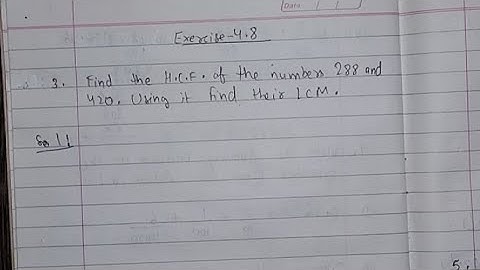 Date / /
Exercise-4.8
3. Find the H.C.F. of the numbers 288 and
420. Using it find their LCM.
Sol
5.